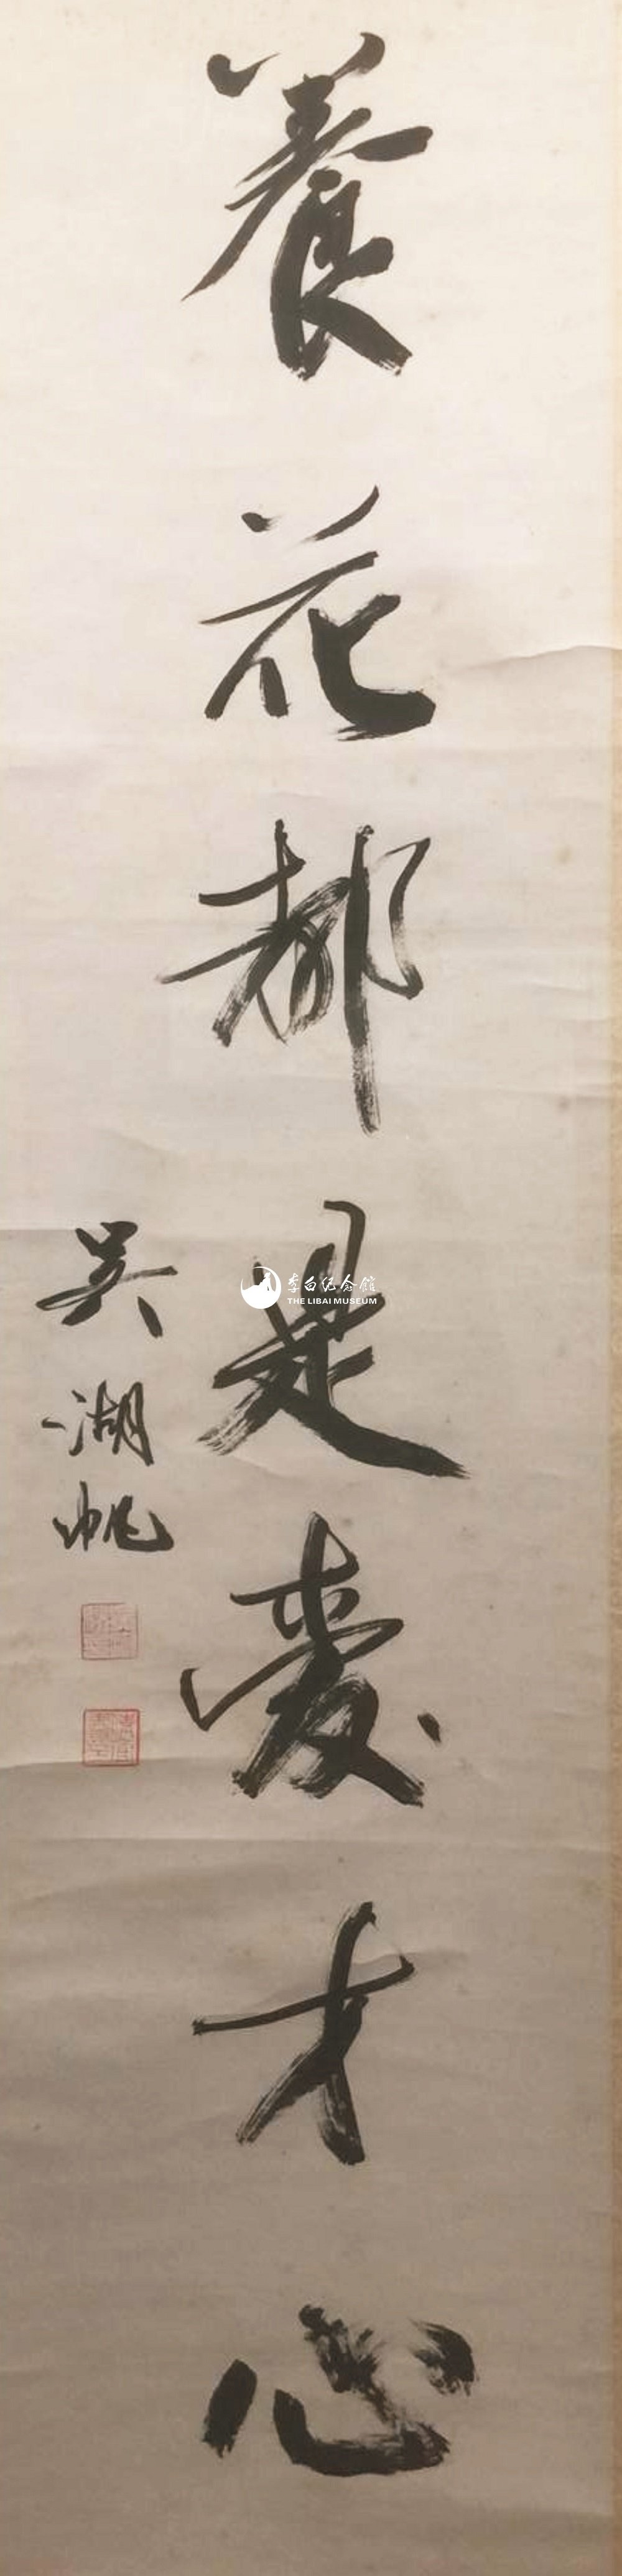 養花都是愛才心
吳湖帆
李白纪念馆
THE LIBAI MUSEUM